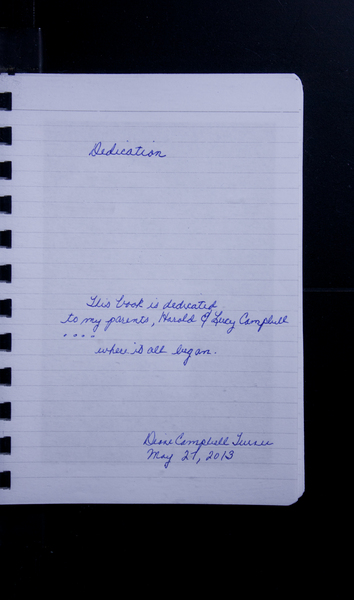 Dedication
This book is dedicated
to my parents, Harold & Lucy Campbell
....
where it all began.
Diane Campbell Turner
May 27, 2013